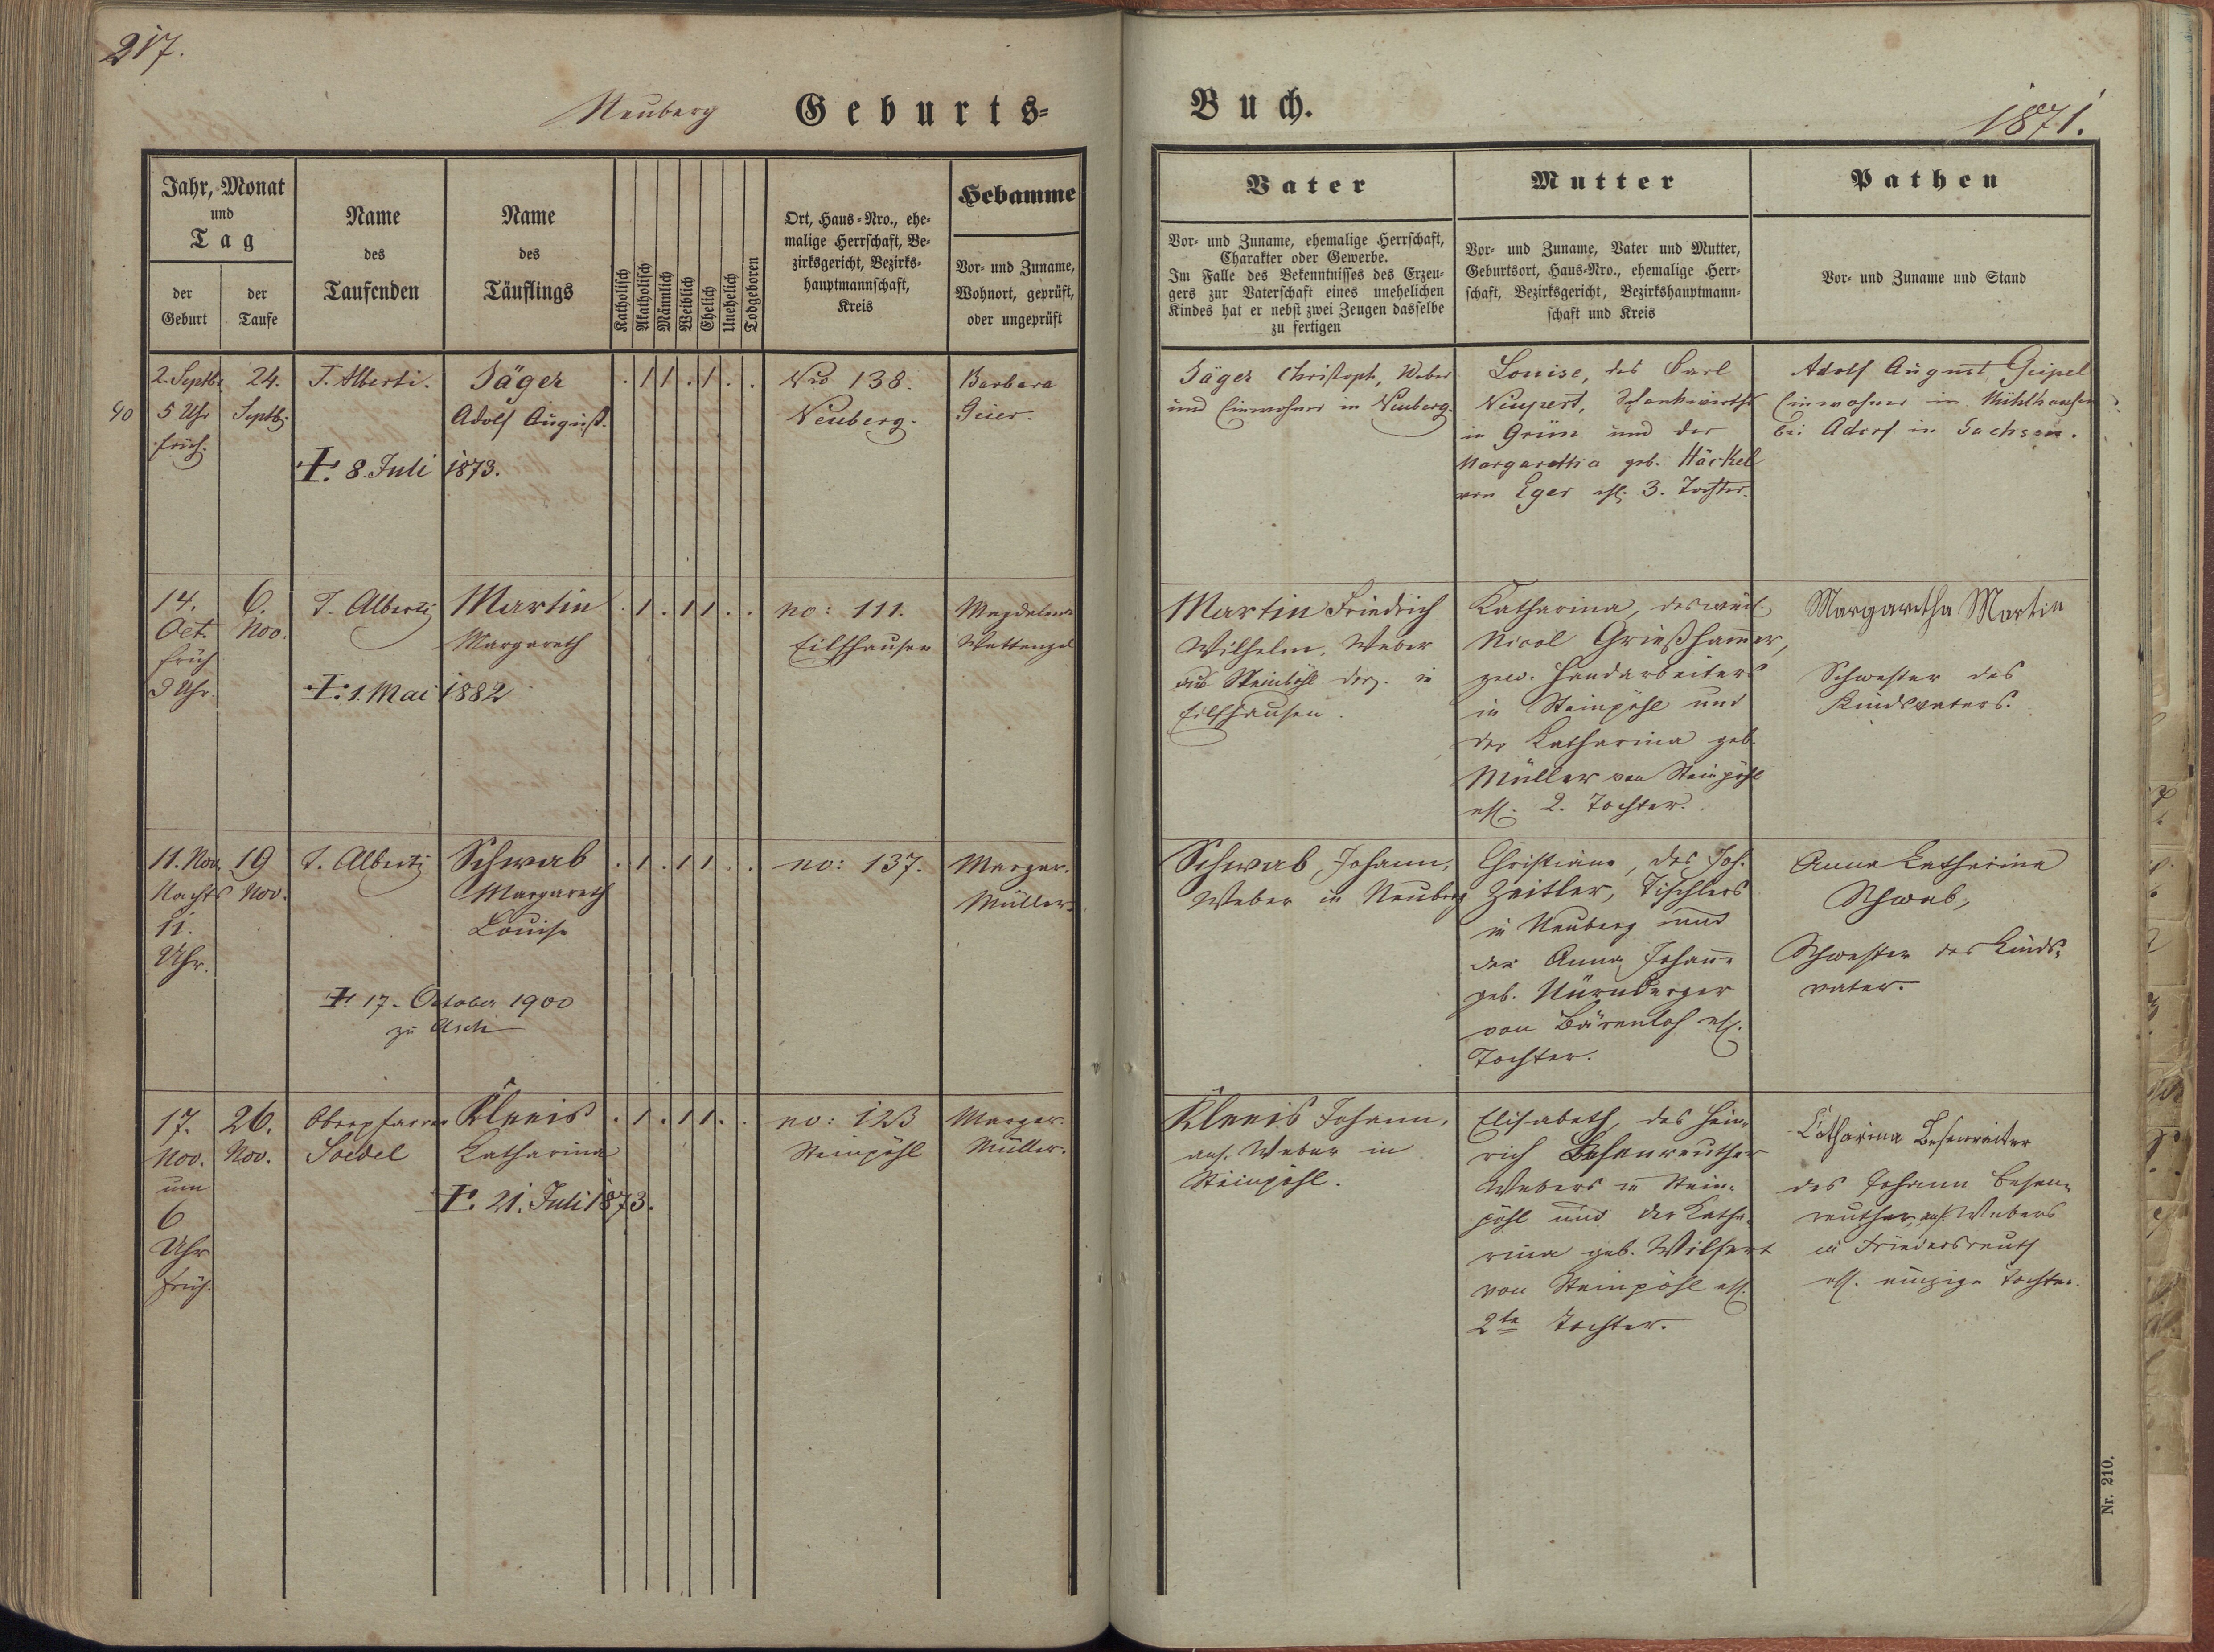 217.
Neuberg Geburts-
Buch.
1871.
Jahr, Monat
und
Tag
der
Geburt
der
Taufe
Name
des
Taufenden
Name
des
Täuflings
Katholisch
Akatholisch
Männlich
Weiblich
Ehelich
Unehelich
Todgeboren
Ort, Haus-Nro., ehe-
malige Herrschaft, Be-
zirksgericht, Bezirks-
hauptmannschaft,
Kreis
Hebamme
Vor- und Zuname,
Wohnort, geprüft,
oder ungeprüft
Vater
Vor- und Zuname, ehemalige Herrschaft,
Charakter oder Gewerbe.
Im Falle des Bekenntnisses des Erzeu-
gers zur Vaterschaft eines unehelichen
Kindes hat er nebst zwei Zeugen dasselbe
zu fertigen
Mutter
Vor- und Zuname, Vater und Mutter,
Geburtsort, Haus-Nro., ehemalige Herr-
schaft, Bezirksgericht, Bezirkshauptmann-
schaft und Kreis
Pathen
Vor- und Zuname und Stand
40
2. Septbr.
5 Uhr
früh.
24.
Septbr.
T. Alberti.
Jäger
Adolf August.
†. 8. Juli 1873.
. 1 1 . 1 . .
Nro 138.
Neuberg.
Barbara
Geier.
Jäger Christoph, Weber
und Einwohner in Neuberg.
Louise, des Carl
Neupert, Schankwirths
in Grün und der
Margaretha geb. Häckel
von Eger ehl. 3. Tochter.
Adolf August Geipel
Einwohner in Mühlhausen
bei Adorf in Sachsen.
14.
Oct.
früh
9 Uhr.
6.
Nov.
T. Alberti
Martin
Margareth
†. 1. Mai 1882
. 1 . 1 1 . .
no: 111.
Eilfhausen
Magdalena
Wettengel
Martin Friedrich
Wilhelm, Weber
aus Steinpöhl derz. in
Eilfhausen.
Katharina, des weil.
Nicol Grießham̄er,
gew. Handarbeiters
in Steinpöhl und
der Katharina geb.
Müller von Steinpöhl
ehl. 2. Tochter.
Margaretha Martin
Schwester des
Kindsvaters.
11. Nov.
Nachts
11.
Uhr.
19
Nov.
T. Alberti
Schwab
Margareth
Louise
†. 17. October 1900
zu Asch
. 1 . 1 1 . .
no: 137.
Margar.
Müller.
Schwab Johann,
Weber in Neuberg
Christiane, des Joh.
Zeitler, Tischlers
in Neuberg und
der Anna Johan̄e
geb. Nürnberger
von Bärenloh ehl.
Tochter.
Anna Katharina
Schwab,
Schwester des Kinds-
vater.
17.
Nov.
um
6
Uhr
früh.
26.
Nov.
Oberpfarrer
Soedel
Kleeis
Katharina
†. 21. Juli 1873.
. 1 . 1 1 . .
no: 123
Steinpöhl
Margar.
Müller.
Kleeis Johann,
ans. Weber in
Steinpöhl.
Elisabeth, des Hein-
rich Besenreuther
Webers in Stein-
pöhl und der Katha-
rina geb. Wilfert
von Steinpöhl ehl.
2te Tochter.
Catharina Besenreuter
des Johann Besen-
reuther, ans. Webers
in Friedersreuth
ehl. einzige Tochter.
Nr. 210.